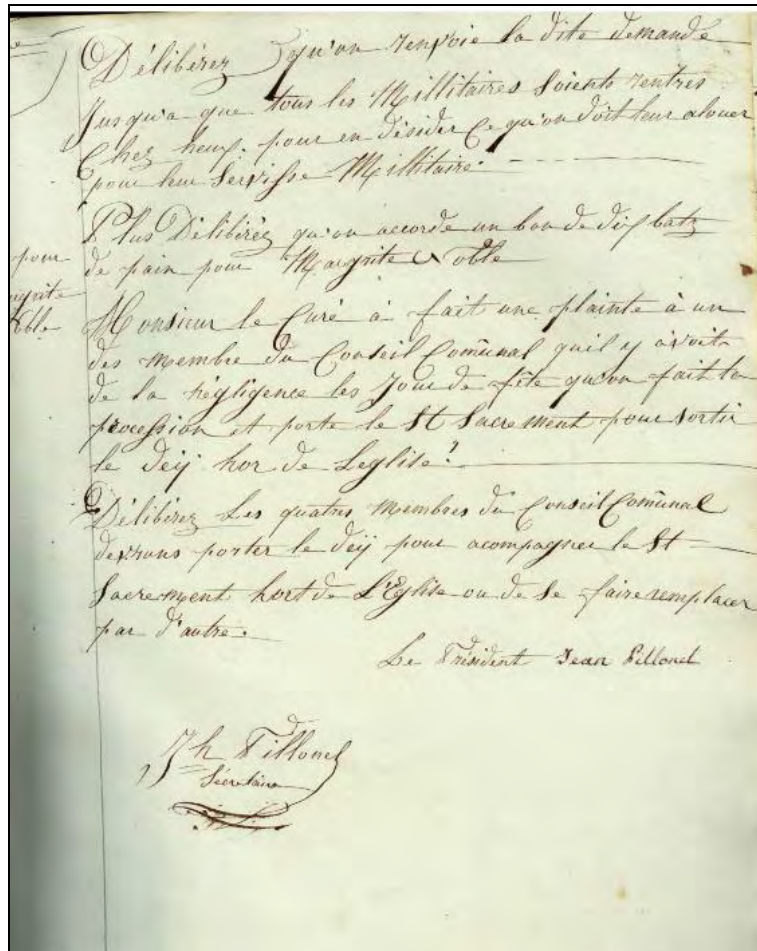 Délibérez qu'on renvoie la dite demande
Jusqu'a que tous les Millitaires Soients rentres
Chez heux. pour en désider Ce qu'on doit leur alouer
pour leur Servisse Millitaire.
Plus Délibéréz qu'on accorde un bon de dix batz
de pain pour Margrite Noble
pour
Monsieur le Curé à fait une plainte à un
des membre du Conseil Comũnal quil y àvoit
de la négligence les Jour de fête qu'on fait la
procession et porte le St Sacrement pour Sortir
le deÿ hor de Leglise?
Délibérez Les quatres Membres du Conseil Comũnal
devrons porter le deÿ pour acompagner le St
Sacrement hort de L'Eglise ou de Se faire remplacer
par d'autre.
Le Président Jean Pillonel
Jh Pillonel
Sécretaire